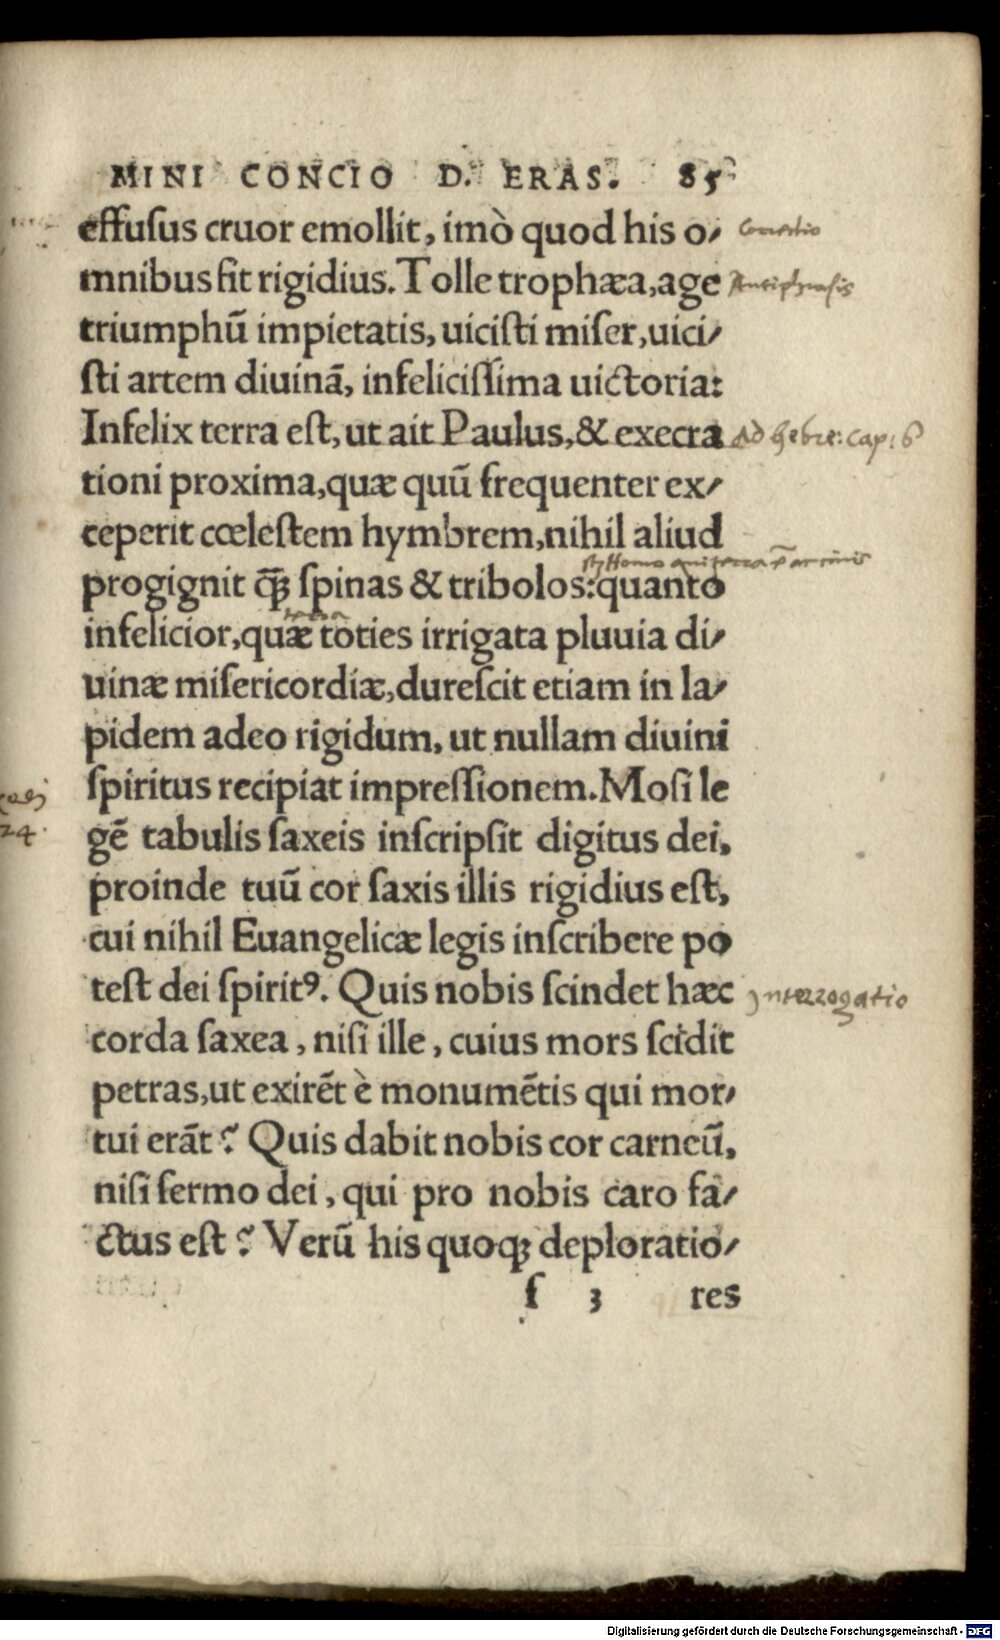 MINI CONCIO D. ERAS. 85
effuſus cruor emollit, imò quod his o-
mnibus ſit rigidius. Tolle trophæa, age
Antiphrasis
triumphū impietatis, uiciſti miſer, uici-
ſti artem diuinā, infeliciſſima uictoria:
Infelix terra eſt, ut ait Paulus, & execra
Ad hebre: cap: 6
tioni proxima, quæ quū frequenter ex-
ceperit cœleſtem hymbrem, nihil aliud
progignit q̄ꝫ ſpinas & tribolos: quanto
infelicior, quæ toties irrigata pluuia di-
uinæ miſericordiæ, dureſcit etiam in la-
pidem adeo rigidum, ut nullam diuini
ſpiritus recipiat impreſſionem. Moſi le
gē tabulis ſaxeis inſcripſit digitus dei,
24.
proinde tuū cor ſaxis illis rigidius eſt,
cui nihil Euangelicæ legis inſcribere po
teſt dei ſpiritꝰ. Quis nobis ſcindet hæc
Interrogatio
corda ſaxea, niſi ille, cuius mors ſcidit
petras, ut exirēt è monumētis qui mor-
tui erāt? Quis dabit nobis cor carneū,
niſi ſermo dei, qui pro nobis caro fa-
ctus eſt? Verū his quoqꝫ deploratio-
ſ 3 res
Digitalisierung gefördert durch die Deutsche Forschungsgemeinschaft - DFG